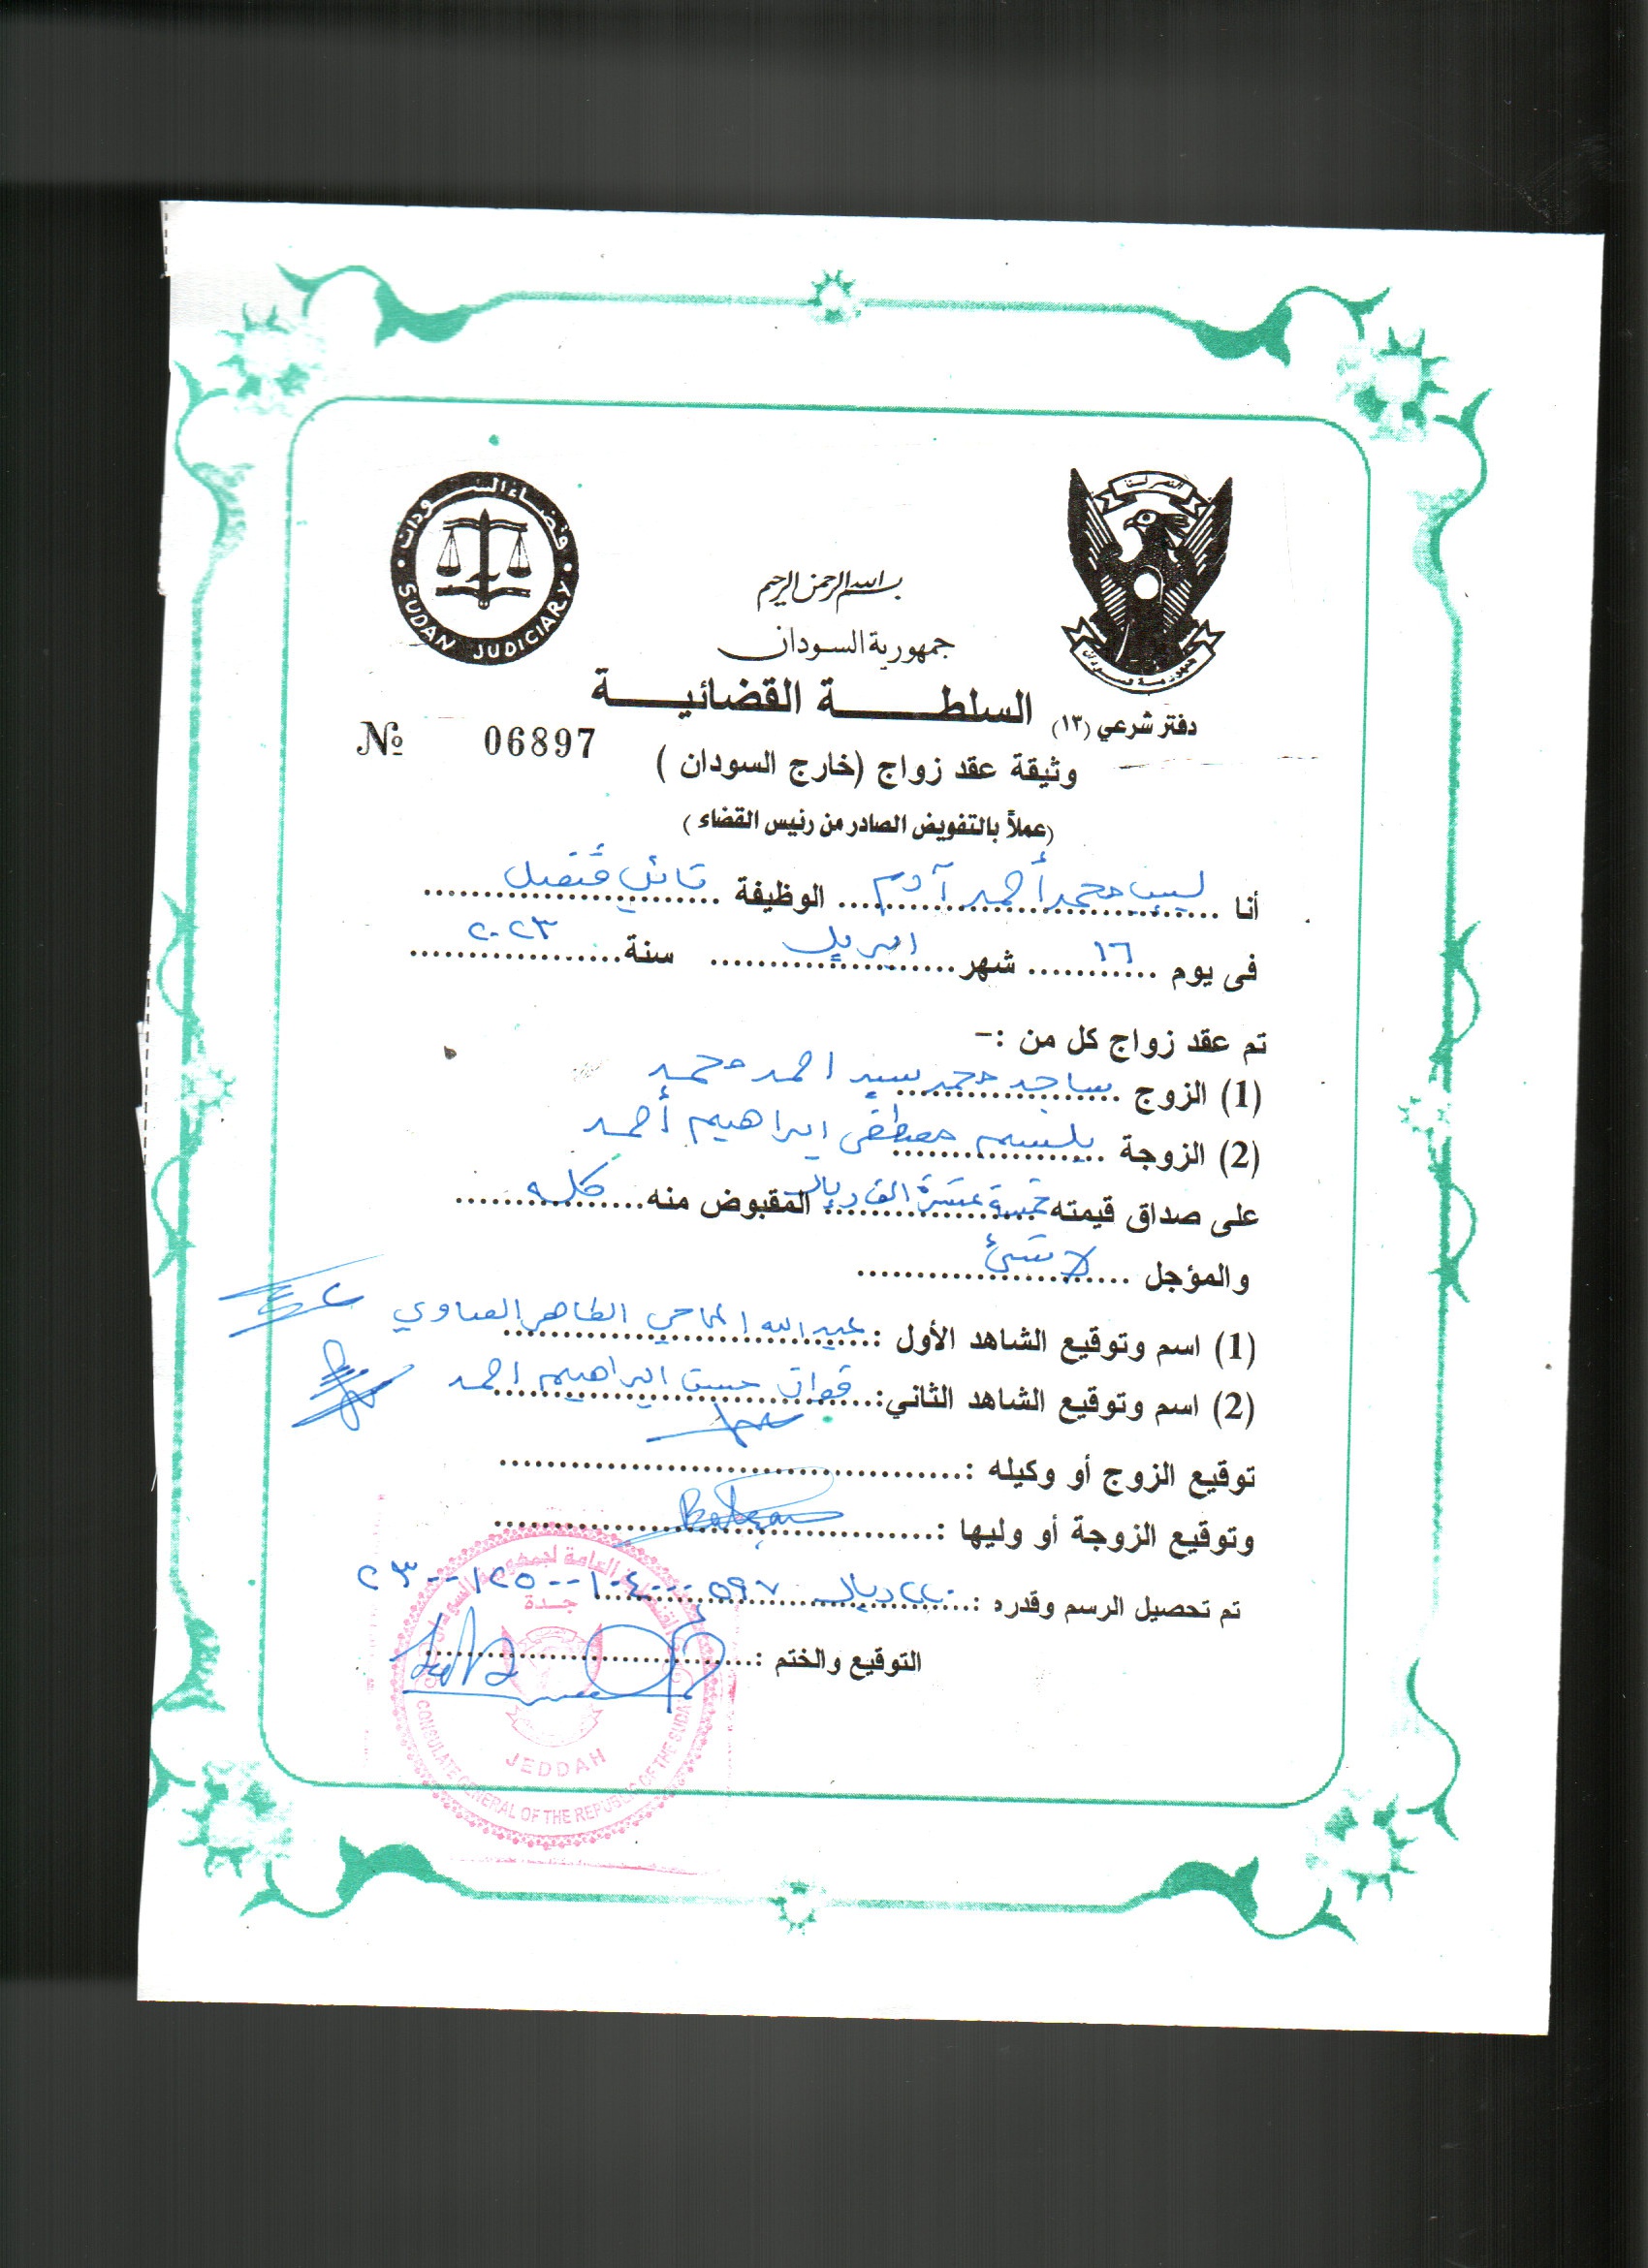 قضاء السودان
SUDAN JUDICIARY
النصر لنا
جمهورية السودان
بسم الله الرحمن الرحيم
جمهورية السودان
السلطة القضائية
دفتر شرعي (١٣)
№ 06897
وثيقة عقد زواج (خارج السودان )
(عملاً بالتفويض الصادر من رئيس القضاء )
أنا لبيب محمد أحمد آدم الوظيفة نائب قنصل
فى يوم ١٦ شهر ابريل سنة ٢٠٢٣
تم عقد زواج كل من :-
(1) الزوج ساجد محمد سيد احمد محمد
(2) الزوجة بلسم مصطفى ابراهيم أحمد
على صداق قيمته خمسة عشرة الف ريال المقبوض منه كله
والمؤجل لا شئ
(1) اسم وتوقيع الشاهد الأول : عبد الله الماحي الطاهر
(2) اسم وتوقيع الشاهد الثاني: حسن ابراهيم احمد
توقيع الزوج أو وكيله :
وتوقيع الزوجة أو وليها :
تم تحصيل الرسم وقدره : ريال
التوقيع والختم :
القنصلية العامة لجمهورية السودان
جدة
JEDDAH
CONSULATE GENERAL OF THE REPUBLIC OF THE SUDAN